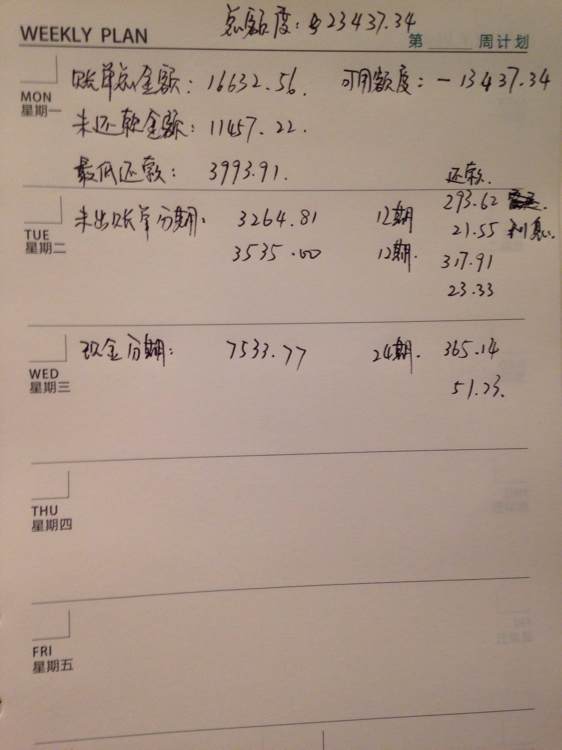 总额度：23437.34
WEEKLY PLAN
第 周计划
MON
星期一
账单总金额：16632.56. 可用额度：-13437.34
未还款金额：11457.22.
最低还款：3993.91.
还款.
TUE
星期二
未出账单分期：3264.81 12期 293.62
3535.00 12期. 21.55 利息.
317.91
23.33
WED
星期三
现金分期：7533.77 24期. 365.14
51.23.
THU
星期四
FRI
星期五